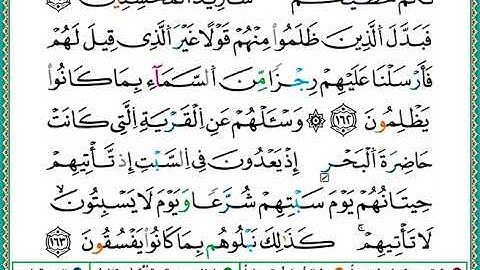 فَبَدَّلَ ٱلَّذِينَ ظَلَمُوا۟ مِنْهُمْ قَوْلًا غَيْرَ ٱلَّذِى قِيلَ لَهُمْ
فَأَرْسَلْنَا عَلَيْهِمْ رِجْزًا مِّنَ ٱلسَّمَآءِ بِمَا كَانُوا۟
يَظْلِمُونَ ﴿١٦٢﴾ ۞ وَسْـَٔلْهُمْ عَنِ ٱلْقَرْيَةِ ٱلَّتِى كَانَتْ
حَاضِرَةَ ٱلْبَحْرِ إِذْ يَعْدُونَ فِى ٱلسَّبْتِ إِذْ تَأْتِيهِمْ
حِيتَانُهُمْ يَوْمَ سَبْتِهِمْ شُرَّعًا وَيَوْمَ لَا يَسْبِتُونَ ۙ
لَا تَأْتِيهِمْ ۚ كَذَٰلِكَ نَبْلُوهُم بِمَا كَانُوا۟ يَفْسُقُونَ ﴿١٦٣﴾